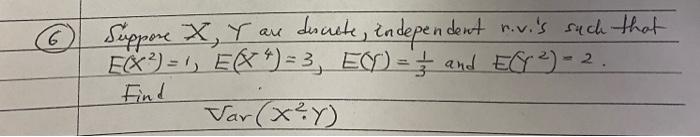 6 Suppose X, Y are discrete, independent r.v.'s such that
E(X²) = 1, E(X⁴) = 3, E(Y) = 1/3 and E(Y²) = 2.
Find
Var(X²·Y)